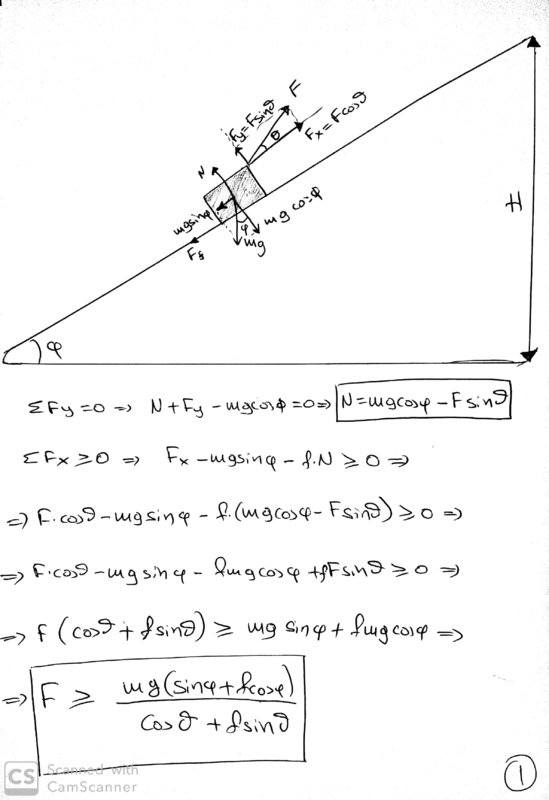 F
Fy=Fsinϑ
θ
Fx=Fcosϑ
N
mgsinφ
mgcosφ
φ
mg
Fs
H
φ
ΣFy=0 => N+Fy-mgcosφ=0=> N=mgcosφ-Fsinϑ
ΣFx≥0 => Fx-mgsinφ-f.N≥0 =>
=> F.cosϑ-mgsinφ-f.(mgcosφ-Fsinϑ)≥0 =>
=> F.cosϑ-mgsinφ-fmgcosφ+fFsinϑ≥0 =>
=> F(cosϑ+fsinϑ)≥ mgsinφ+fmgcosφ =>
=> F ≥ mg(sinφ+fcosφ)
cosϑ+fsinϑ
CS Scanned with
CamScanner
1